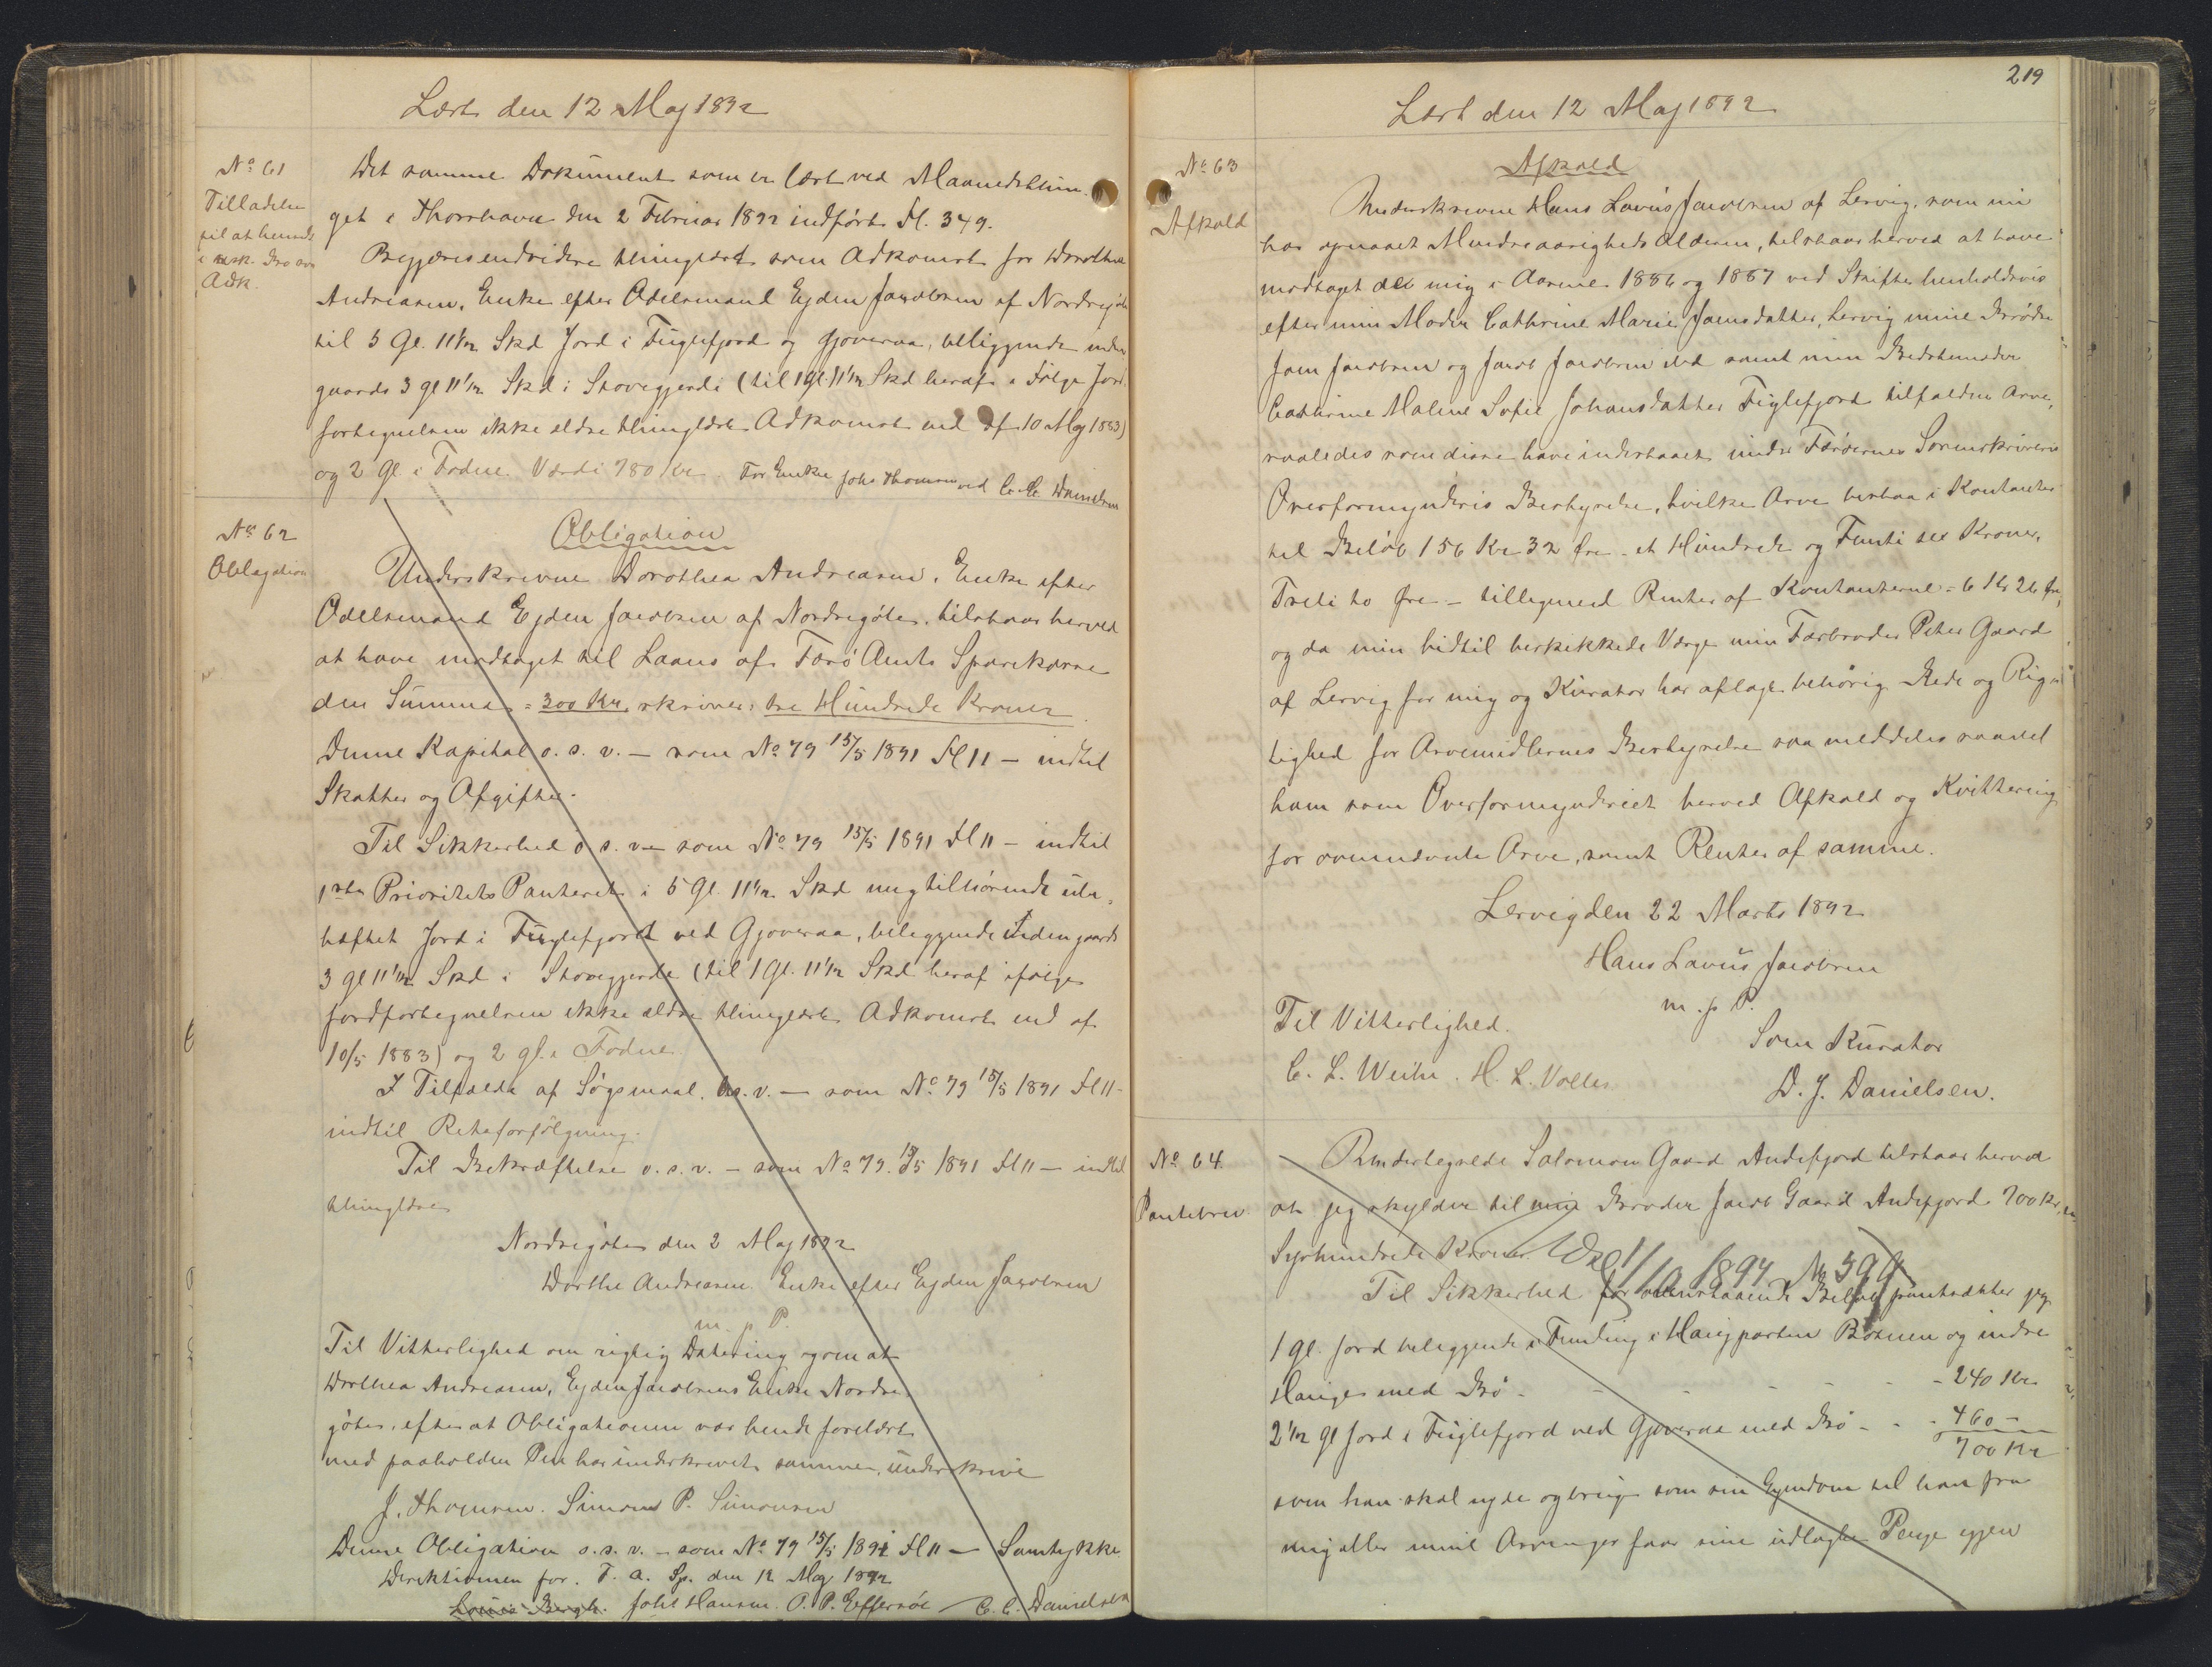 Læst den 12 Maj 1892
No 61
Tilladelse
til at hensidde
i usk. Bo som
Adk.
Det samme Dokument som er læst ved Maanedsthin-
get i Thorshavn den 2 Februar 1892 indført Fl. 349.
Begjæres endvidere thinglæst som Adkomst for Dorothea
Andreasen, Enke efter Odelsmand Ejden Jacobsen af Nordregøte
til 5 Gl. 11 1/2 Skd Jord i Fuglefjord og Gjoveraa, beliggende inden
gaards 3 gl 11 1/2 Skd i Stovegjerde (til 1 gl. 11 1/2 Skd heraf i Følge Jord-
fortegnelsen ikke ældre thinglæst Adkomst end af 10 Maj 1883)
og 2 Gl. i Fodne. Værdi 780 Kr. For Enken Johs Thomsen ved C. C. Danielsen
No 62
Obligation
Obligation
Underskrevne Dorothea Andreasen, Enke efter
Odelsmand Ejden Jacobsen af Nordregøte, tilstaar herved
at have modtaget til Laans af Færø Amts Sparekasse
den Summa = 300 Kr. skriver: tre Hundrede Kroner.
Denne Kapital o. s. v. – som No 79 15/5 1891 Fl 11 – indtil
Skatter og Afgifter.
Til Sikkerhed o. s. v – som No 79 15/5 1891 Fl 11 – indtil
1ste Prioritets Panteret i 5 Gl. 11 1/2 Skd mig tilhørende ube-
hæftet Jord i Fuglefjord ved Gjoveraa, beliggende indengaards
3 gl 11 1/2 Skd i Stovegjerde (til 1 Gl. 11 1/2 Skd heraf ifølge
Jordfortegnelsen ikke ældre thinglæst Adkomst end af
10/5 1883) og 2 gl. i Fodne.
I Tilfælde af Søgsmaal. o. s. v. – som No 79 15/5 1891 Fl 11 –
indtil Retsforfølgning.
Til Bekræftelse o. s. v. – som No 79. 15/5 1891 Fl 11 – indtil
thinglæses
Nordregøte den 2 Maj 1892
Dorthe Andreasen Enke efter Ejden Jacobsen
m. p. P.
Til Vitterlighed om rigtig Datering og om at
Dorthea Andreasen, Ejden Jacobsens Enke Nordre-
gøte, efter at Obligationen var hende forelæst
med paaholden Pen har underskrevet samme, underskrive
J. Thomsen. Simon P. Simonsen
Denne Obligation o. s. v. – som No 79 15/5 1891 Fl 11 – Samtykke
Direktionen for. F. A. Sp. den 12 Maj 1892
Louis Bergh. Johs Hansen. P. P. Effersøe C. C. Danielsen
219
Læst den 12 Maj 1892
No 63
Afkald
Afkald
Underskrevne Hans Lavus Jacobsen af Lervig, som nu
har opnaaet Mindreaarigheds Alderen, tilstaar herved at have
modtaget de mig i Aarene 1886 og 1887 ved Skifter henholdsvis
efter min Moder Cathrine Marie Joensdatter, Lervig mine Brødre
Joen Jacobsen og Jacob Jacobsen ibd samt min Bedstemoder
Cathrine Malene Sofie Johansdatter Fuglefjord tilfaldne Arve,
saaledes som disse have indestaaet under Færøernes Sorenskriveris
Overformynderis Bestyrelse, hvilke Arve bestaa i Kontanter
til Beløb 156 Kr 32 Øre – et Hundrede og Femti sex Kroner,
Treti to Øre – tilligemed Renter af Kontanterne = 6 Kr 26 Øre,
og da min hidtil beskikkede Værge min Farbroder Peter Gaard
af Lervig for mig og Kurator har aflagt behørig Rede og Rig-
tighed for Arvemidlernes Bestyrelse saa meddeles saavel
ham som Overformynderiet herved Afkald og Kvittering
for ovennævnte Arve, samt Renter af samme.
Lervig den 22 Marts 1892
Hans Lavus Jacobsen
m. p. P.
Til Vitterlighed.
Som Kurator
C. L. Weihe. H. L. Volles
D. J. Danielsen.
No 64
Pantebrev
Undertegnede Salomon Gaard Andefjord tilstaar herved
at jeg skylder til min Broder Jacob Gaard Andefjord 700 Kr,
Syvhundrede Kroner.
Udsl 1/10 1894 No 399
Til Sikkerhed for ovenstaaende Beløb pantsætter jeg
1 gl. Jord beliggende i Funding i Haugparten Bønen og indre
Hauge med Bø - - - - - - 240 Kr
2 1/2 gl Jord i Fuglefjord ved Gjoveraa med Bø - - - 460 –
700 Kr
som han skal nyde og bruge som sin Ejendom til han fra
mig eller mine Arvinger faar sine udlagte Penge igjen